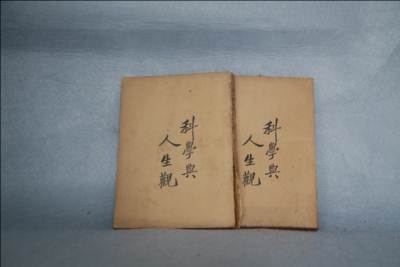 科學與
人生觀
科學與
人生觀